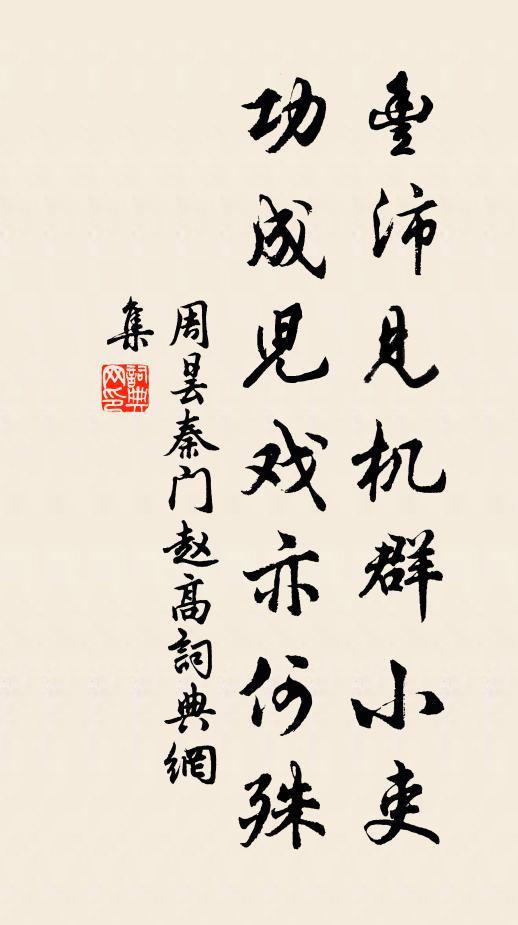 豐沛見机群小吏
功成児戏亦何殊
周昙秦门赵高詞典網
集
詞典網印